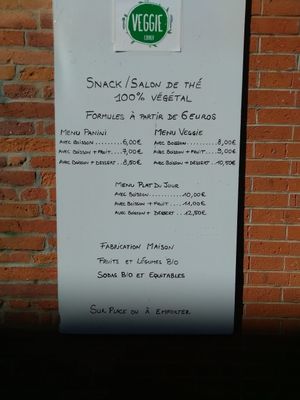 VEGGIE
CORNER
SNACK/SALON DE THÉ
100% VÉGÉTAL
FORMULES À PARTIR DE 6 EUROS
MENU PANINI
AVEC BOISSON.......6,00€
AVEC BOISSON + FRUIT...7,00€
AVEC BOISSON + DESSERT..8,50€
MENU VEGGIE
AVEC BOISSON........8,00€
AVEC BOISSON + FRUIT....9,00€
AVEC BOISSON + DESSERT..10,50€
MENU PLAT DU JOUR
AVEC BOISSON........10,00€
AVEC BOISSON + FRUIT....11,00€
AVEC BOISSON + DESSERT...12,50€
FABRICATION MAISON
FRUITS ET LÉGUMES BIO
SODAS BIO ET EQUITABLES
SUR PLACE OU À EMPORTER